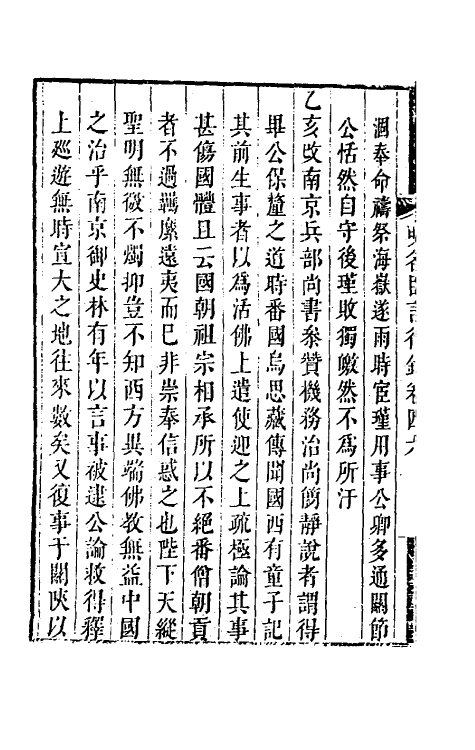 涸奉命禱祭海嶽遂雨時宦瑾用事公卿多通關節
公恬然自守後瑾敗獨皦然不爲所汙
乙亥改南京兵部尚書叅贊機務治尚簡靜說者謂得
畢公保釐之道時番國烏思藏傳聞國西有童子記
其前生事者以爲活佛上遣使迎之上疏極論其事
甚傷國體且云國朝祖宗相承所以不絕番僧朝貢
者不過羈縻遠夷而巳非崇奉信惑之也陛下天縱
聖明無微不燭抑豈不知西方異端佛敎無益中國
之治乎南京御史林有年以言事被逮公論救得釋
上廵遊無時宣大之地往來數矣又復事于關陜以